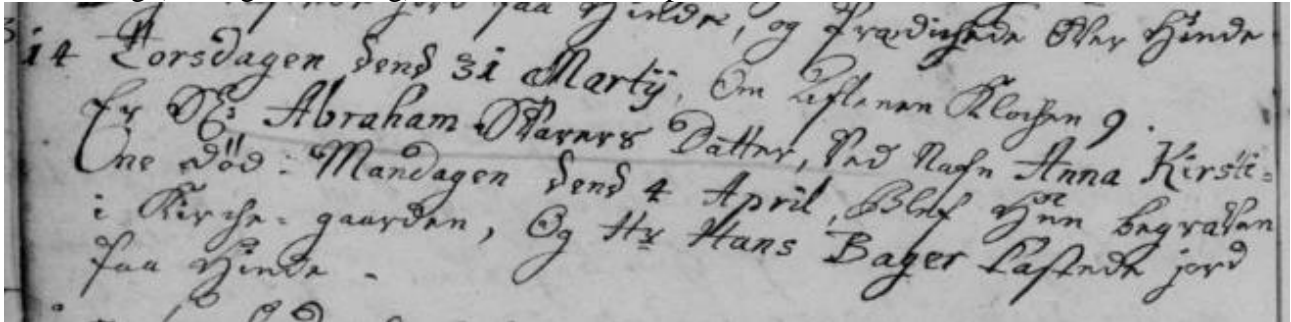 jord paa Hinde, og Prædichede Over Hinde
14 Torsdagen dend 31 Martÿ, Om Aftenen Klochen 9.
Er Sr: Abraham Datter, Ved Nafn Anna Kirsti=
One død: Mandagen dend 4 April, Blef Hun begraven
i Kirche-gaarden, Og Hr Hans Bager Kastede jord
paa Hinde.